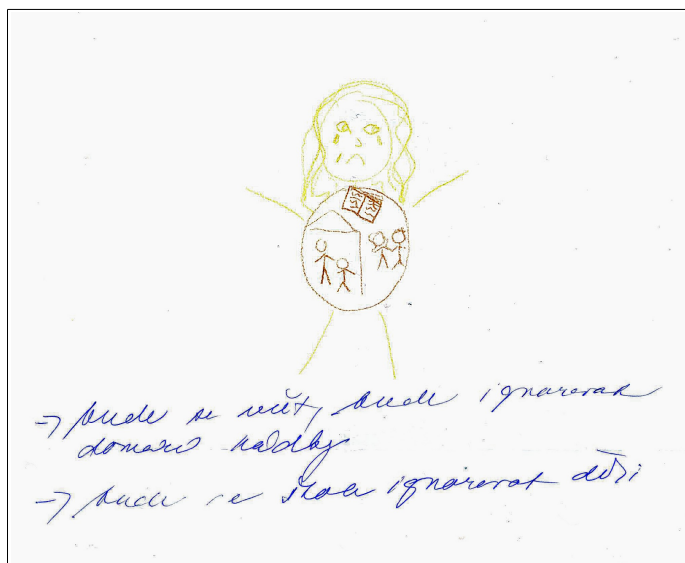 → bude se učit, bude ignorovat
domácí hádky
→ bude ve škole ignorovat děti